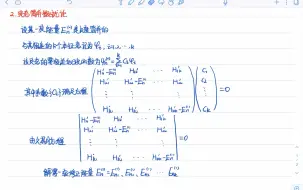 2. 定态简并微扰论
设某一能级 En⁽⁰⁾ 是 k 度简并的
与其相应的 k 个本征态记为 φi, i=1,2,…k
该定态的零级近似波函数为 ψn⁽⁰⁾=Σciφi
其中系数{ci}满足方程
( H'11-En⁽¹⁾ H'12 … H'1k ) ( c1 )
( H'21 H'22-En⁽¹⁾ … H'2k ) ( c2 )
( ⋮ ⋮ ⋮ ) ( ⋮ ) =0
( H'k1 H'k2 … H'kk-En⁽¹⁾ ) ( ck )
由久期方程
| H'11-En⁽¹⁾ H'12 … H'1k |
| H'21 H'22-En⁽¹⁾ … H'2k |
| ⋮ ⋮ ⋮ | =0
| H'k1 H'k2 … H'kk-En⁽¹⁾ |
解得一级修正能量 En⁽¹⁾=En1⁽¹⁾, En2⁽¹⁾, En3⁽¹⁾ … Enk⁽¹⁾